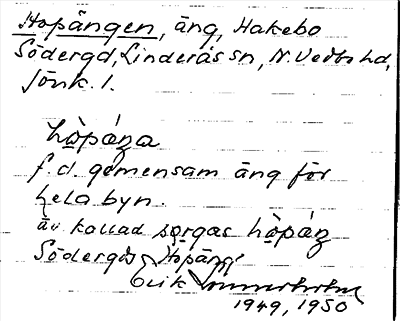 Hopängen, äng, Hakebo
Södergd, Linderås sn, N. Vedbo hd,
Jönk. l.
hòpáŋa
f.d. gemensam äng för
hela byn.
äv. kallad sørgas hòpáŋ
Södergds Hopäng.
Erik
1949, 1950